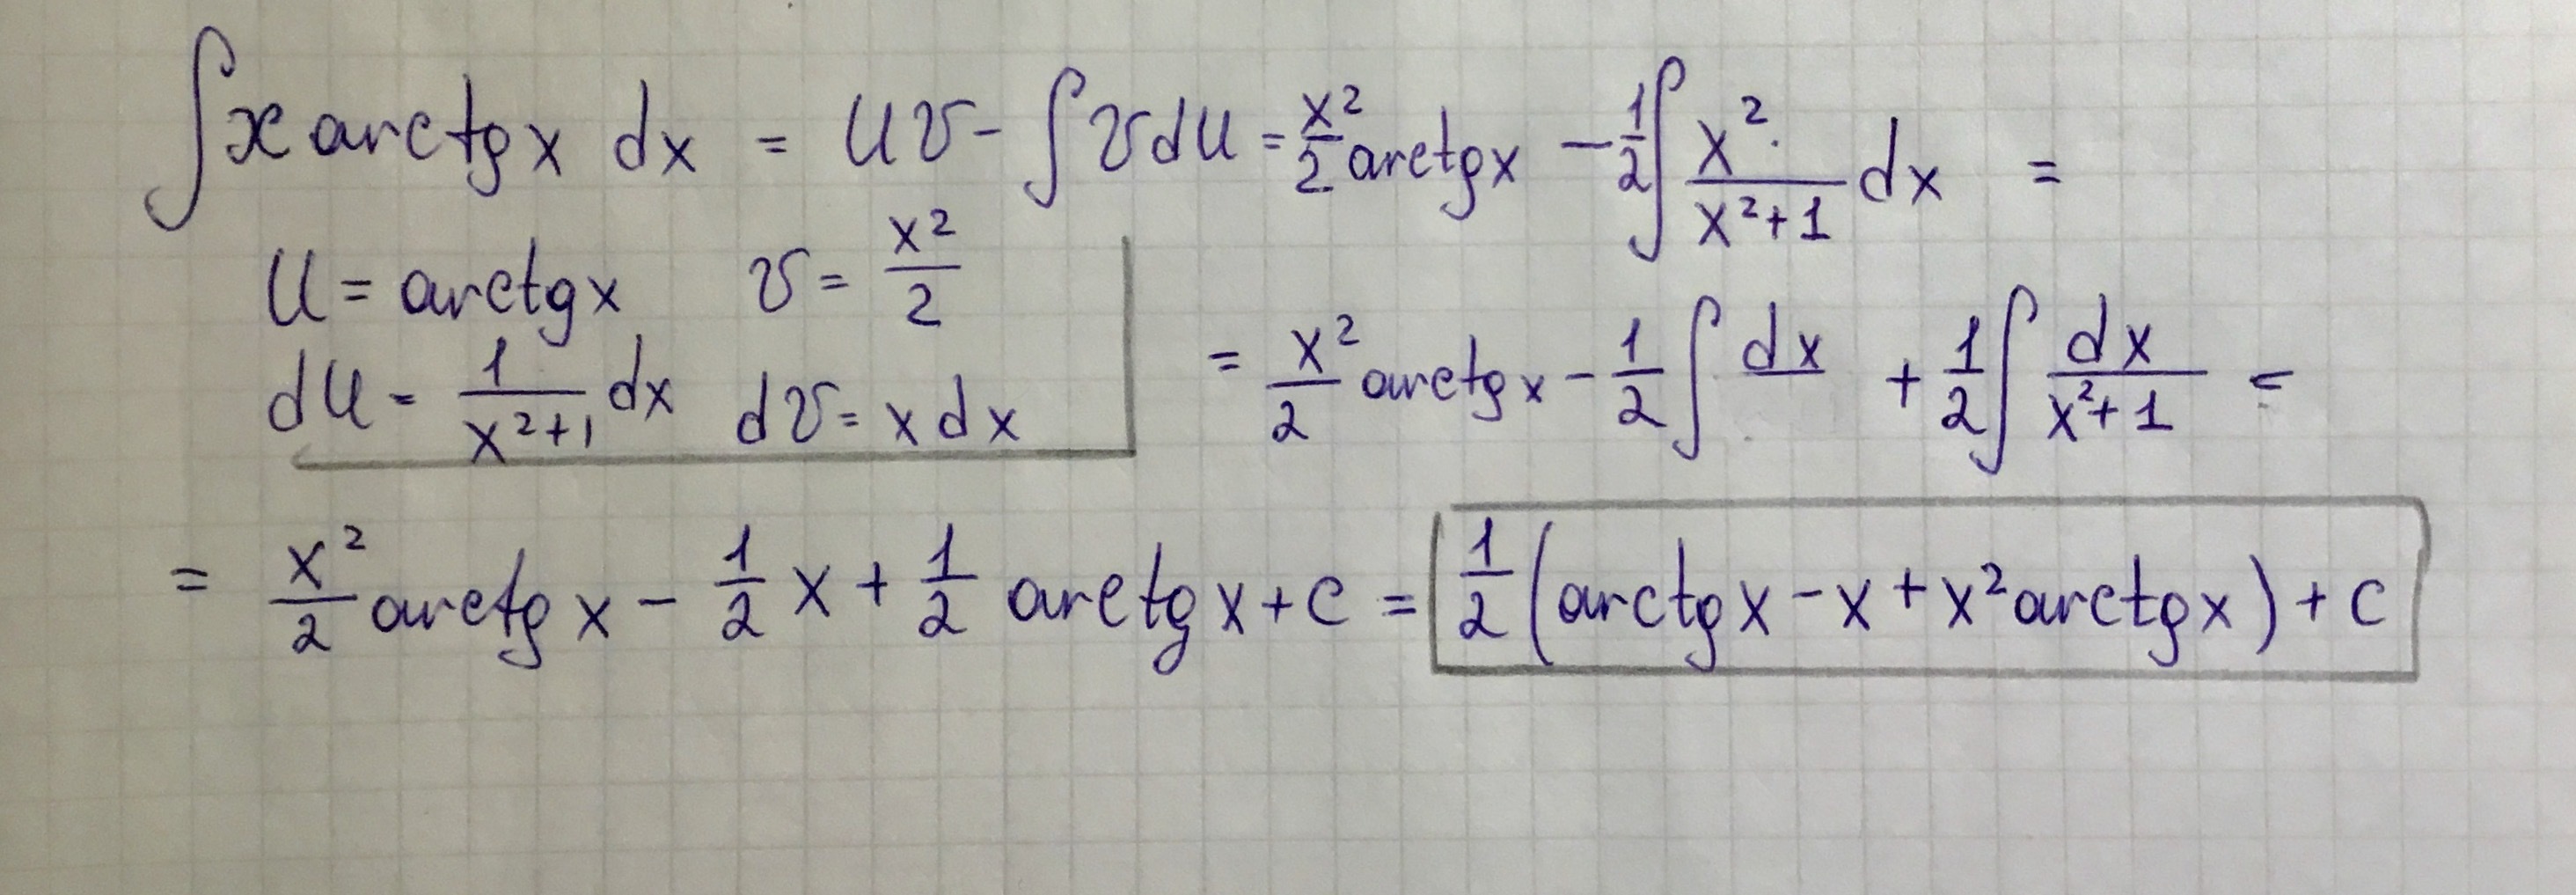 ∫ x arctg x dx = uv - ∫ v du = x²/2 arctg x - 1/2 ∫ x²/(x²+1) dx =
u = arctg x v = x²/2
du = 1/(x²+1) dx dv = x dx
= x²/2 arctg x - 1/2 ∫ dx + 1/2 ∫ dx/(x²+1) =
= x²/2 arctg x - 1/2 x + 1/2 arctg x + c = 1/2 (arctg x - x + x² arctg x) + c